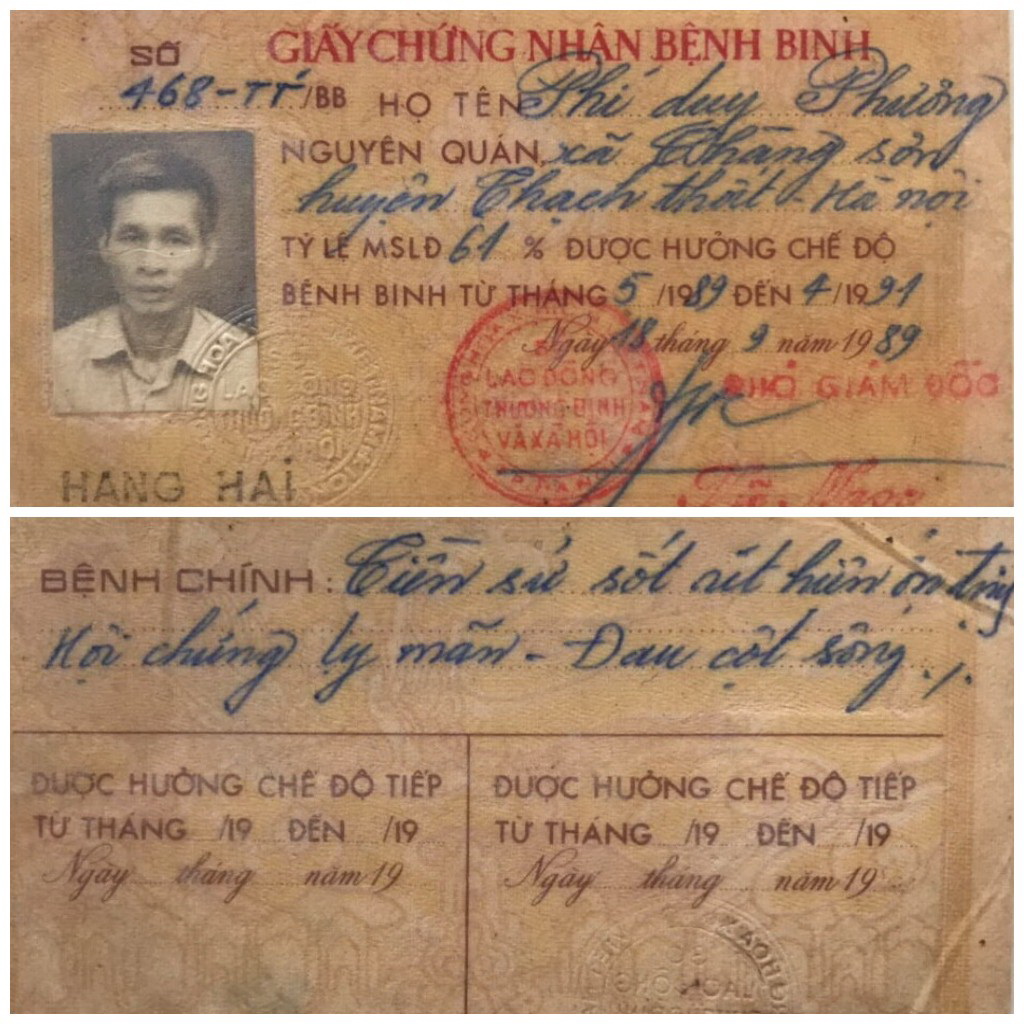 SỐ
GIẤY CHỨNG NHẬN BỆNH BINH
468-TT/BB
HỌ TÊN Phí duy Phưởng
NGUYÊN QUÁN, xã Chàng sơn
huyện Thạch thất - Hà nội
TỶ LỆ MSLĐ 61 % ĐƯỢC HƯỞNG CHẾ ĐỘ
BỆNH BINH TỪ THÁNG 5 /1989 ĐẾN 4/1991
Ngày 18 tháng 9 năm 1989
PHÓ GIÁM ĐỐC
LAO ĐỘNG
THƯƠNG BINH
VÀ XÃ HỘI
HẠNG HAI
BỆNH CHÍNH: Tiền sử sốt rét hiện ổn
Hội chứng lỵ mãn - Đau cột sống./.
ĐƯỢC HƯỞNG CHẾ ĐỘ TIẾP
TỪ THÁNG /19 ĐẾN /19
Ngày tháng năm 19
ĐƯỢC HƯỞNG CHẾ ĐỘ TIẾP
TỪ THÁNG /19 ĐẾN /19
Ngày tháng năm 19